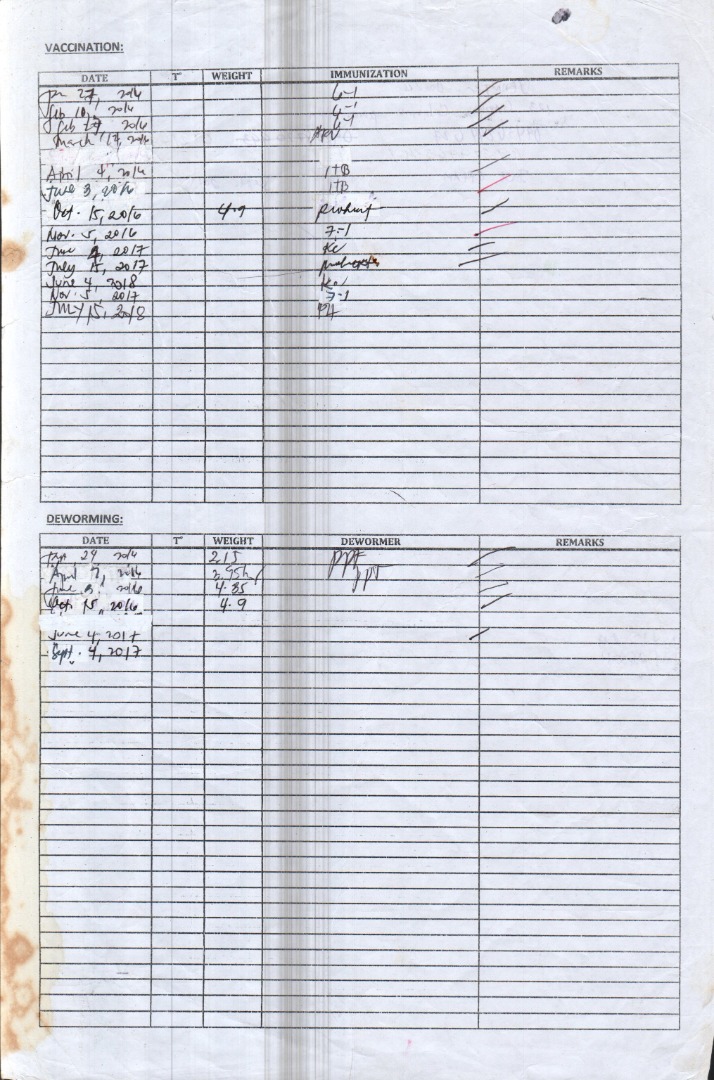 VACCINATION:
DATE T° WEIGHT IMMUNIZATION REMARKS
Jan 27, 2016 6-1
Feb 10, 2016 6-1
Feb 27, 2016 6-1
March 17, 2016
April 4, 2016 ITB
June 3, 2016 ITB
Oct. 15, 2016 4.9
Nov. 5, 2016 7-1
June 4, 2017 KC
July 15, 2017
June 4, 2018 KC
Nov. 5, 2017 7-1
JULY 15, 2018
DEWORMING:
DATE T° WEIGHT DEWORMER REMARKS
Jan 24 2016 2.15 PPT
April 7, 2016 3.95kg PPT
June 3, 2016 4.35
Oct. 15, 2016 4.9
June 4, 2017
Sept. 4, 2017